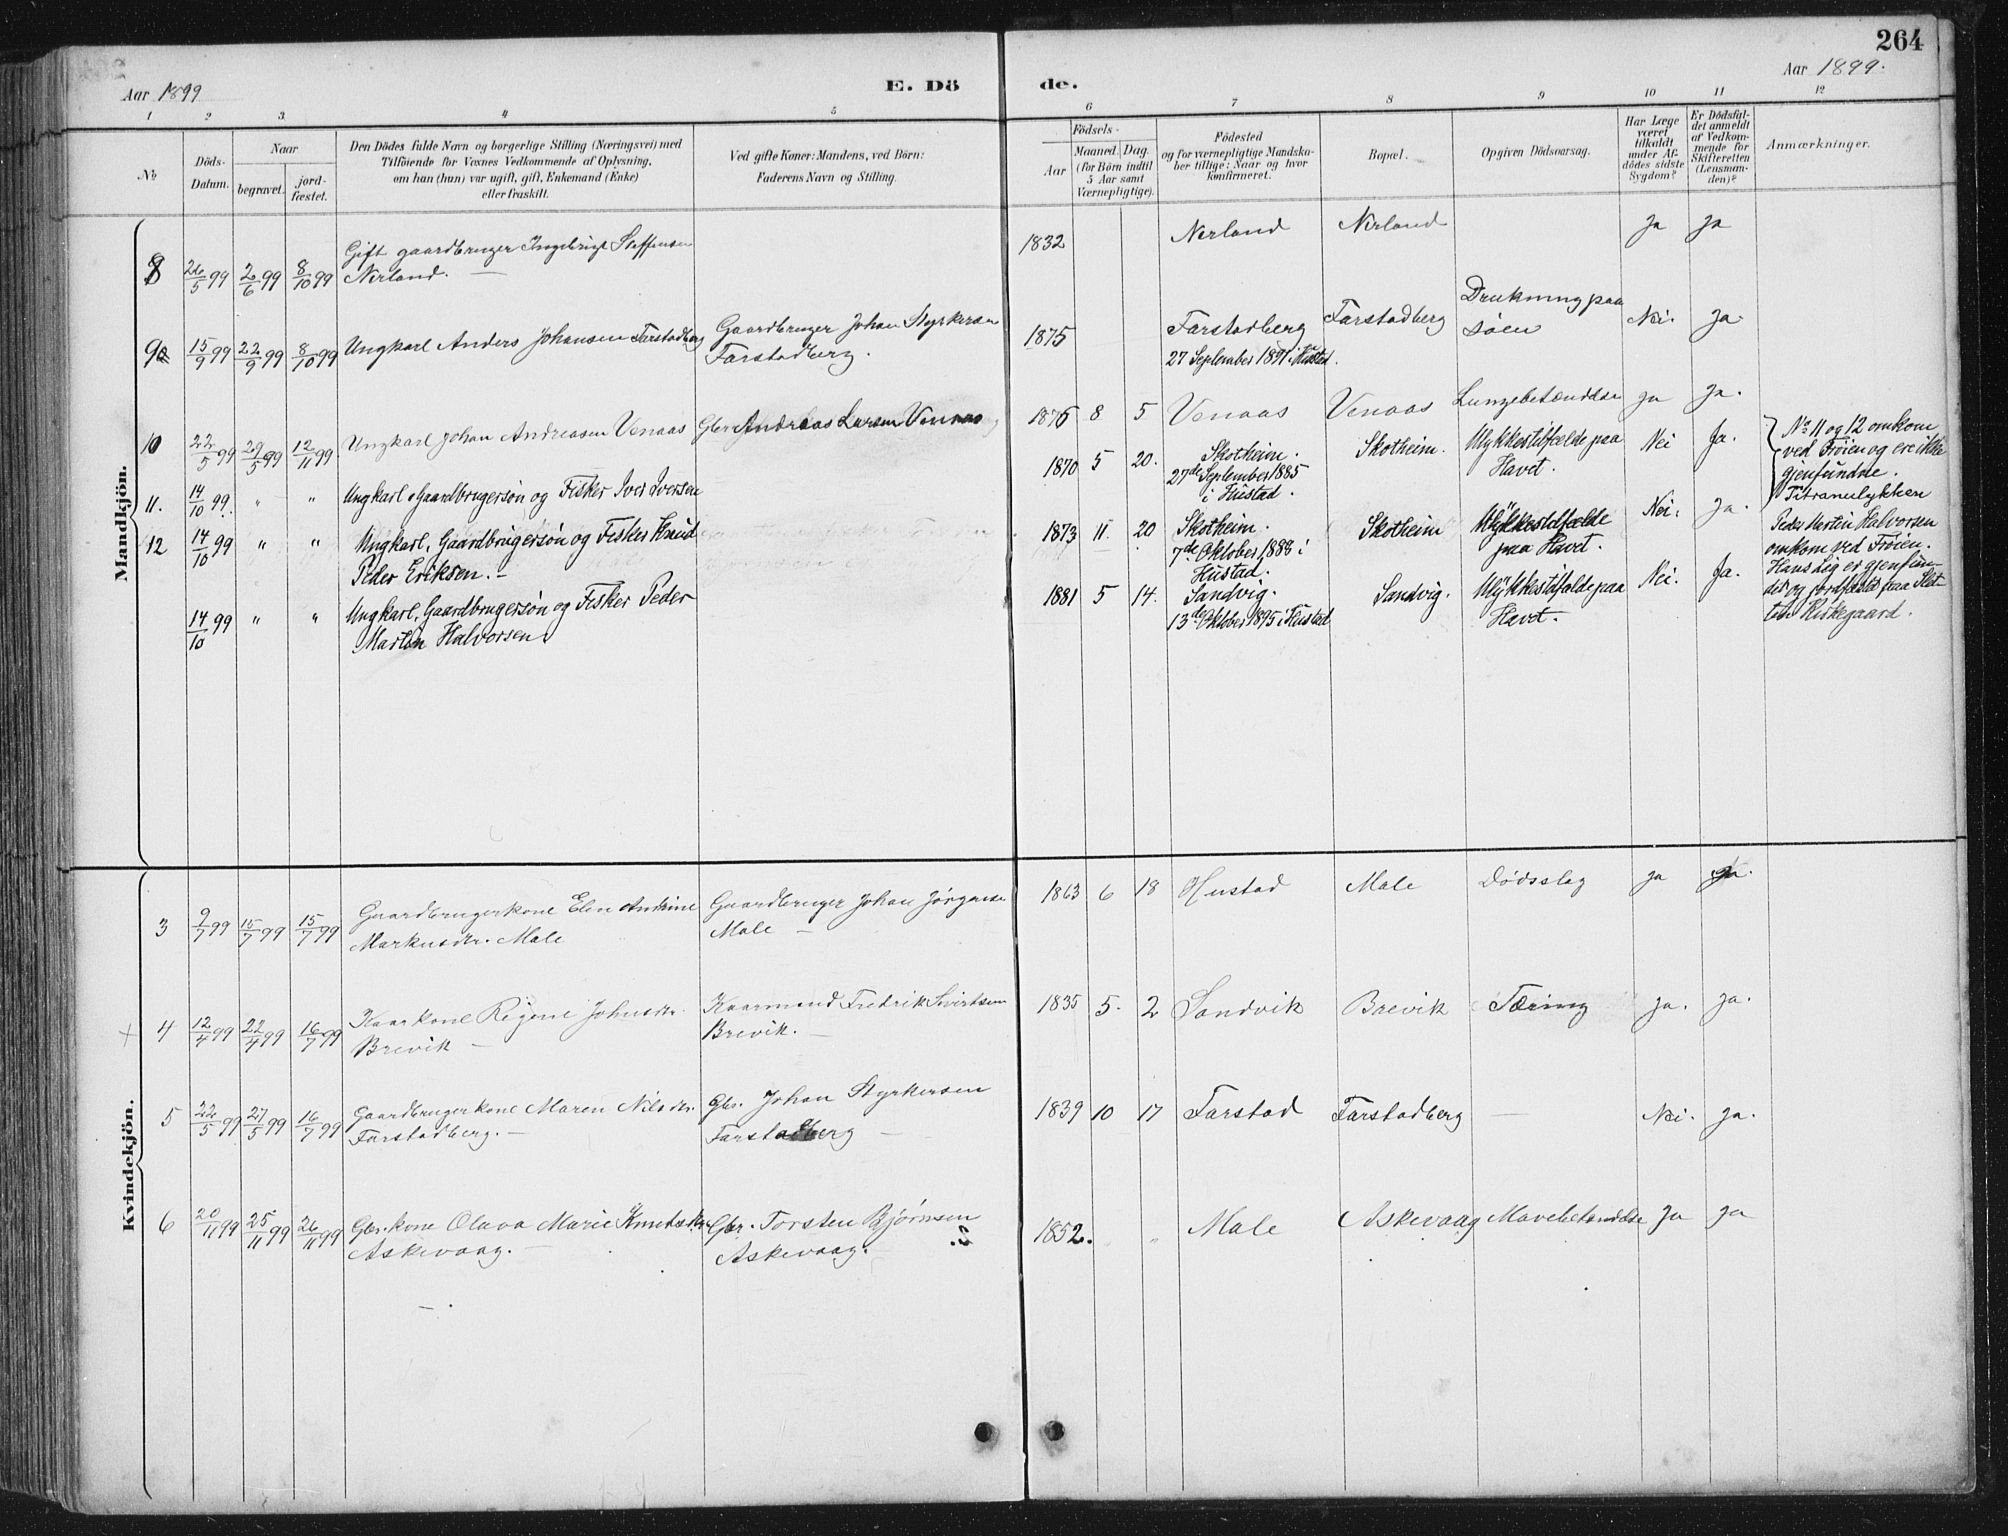 264
Aar 1899
E. Dö
de.
Aar 1899.
1 2 3. 4 5 6 7 8 9 10 11 12
No
Döds-
Datum.
Naar
begravet.
jord-
fæstet.
Den Dödes fulde Navn og borgerlige Stilling (Næringsvei) med
Tilföiende for Voxnes Vedkommende af Oplysning,
om han (hun) var ugift, gift, Enkemand (Enke)
eller fraskilt.
Ved gifte Koner: Mandens, ved Börn:
Faderens Navn og Stilling.
Födsels-
Aar
Maaned. Dag.
(for Börn indtil
5 Aar samt
Værnepligtige).
Födested
og for værnepligtige Mandska-
ber tillige: Naar og hvor
konfirmeret.
Bopæl.
Opgiven Dödsaarsag.
Har Læge
været
tilkaldt
under Af-
dödes sidste
Sygdom?
Er Dödsfal-
det anmeldt
af Vedkom-
mende for
Skifteretten
(Lensman-
den)?
Anmærkninger.
Mandkjön.
8 26/5 99 2/6 99 8/10 99 Gift gaardbruger Ingebrigt Steffensen 1832 Nerland Nerland Ja Ja
Nerland. —
9 15/9 99 22/9 99 8/10 99 Ungkarl Anders Johansen Farstadberg Gaardbruger Johan Styrkersen 1875 Farstadberg Farstadberg Drukning paa Nei. Ja.
Farstadberg. 27 September 1891 i Hustad. Søen
10 22/5 99 29/5 99 12/11 99 Ungkarl Johan Andreasen Venaas Gbr Andreas Larsen Venaas 1876 8 5 Venaas Venaas Lungebetændelse Ja Ja.
11. 14/10 99. " " Ungkarl, Gaardbrugersøn og Fisker Iver Iversen 1870 5 20. Skotheim. Skotheim. Ulykkestilfælde paa Nei Ja.
27de September 1885 Havet.
i Hustad.
No 11 og 12 omkom
ved Frøien og ere ikke
gjenfundne.
Titranulykken
12 14/10 99 " " Ungkarl, Gaardbrugersøn og Fisker Knud 1873 11. 20 Skotheim. Skotheim Ulykkestilfælde Nei. Ja.
Peder Eriksen. — 7de Oktober 1888 i paa Havet.
Hustad.
14/10 99 " " Ungkarl, Gaardbrugersøn og Fisker Peder 1881 5 14. Sandvig. Sandvig. Ulykkestilfælde paa Nei. Ja.
Martin Halvorsen. 13de Oktober 1895 i Hustad Havet.
Peder Martin Halvorsen
omkom ved Frøien.
Hans Lig er gjenfun-
det og jordfæstet paa Slet-
ten Kirkegaard.
Kvindekjön.
3 9/7 99 15/7 99 15/7 99 Gaardbrugerkone Elen Andrine Gaardbruger Johan Jørgensen 1863 6 18 Hustad Male Dødsslag Ja Ja.
Markusdtr. Male Male —
+ 4 12/4 99 22/4 99 16/7 99 Kaarkone Regine Johnsdtr. Kaarmand Fredrik Sivertsen 1835 5. 2 Sandvik Brevik Tæring Ja. Ja.
Brevik — Brevik. —
5 22/5 99 27/5 99 16/7 99 Gaardbrugerkone Maren Nilsdtr. Gbr. Johan Styrkersen 1839 10 17 Farstad Farstadberg — Nei. Ja.
Farstadberg. — Farstadberg —
6 20/11 99 25/11 99 26/11 99 Gbr.kone Olava Marie Knudsdtr Gbr. Torsten Bjørnsen 1852. " Male Askevaag Mavebetændelse Ja Ja
Askevaag. — Askevaag.